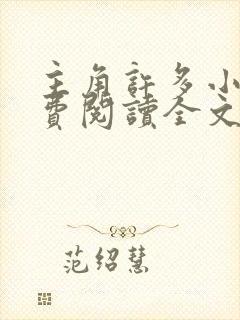 主角許多小
費閱讀全文
范绍慧